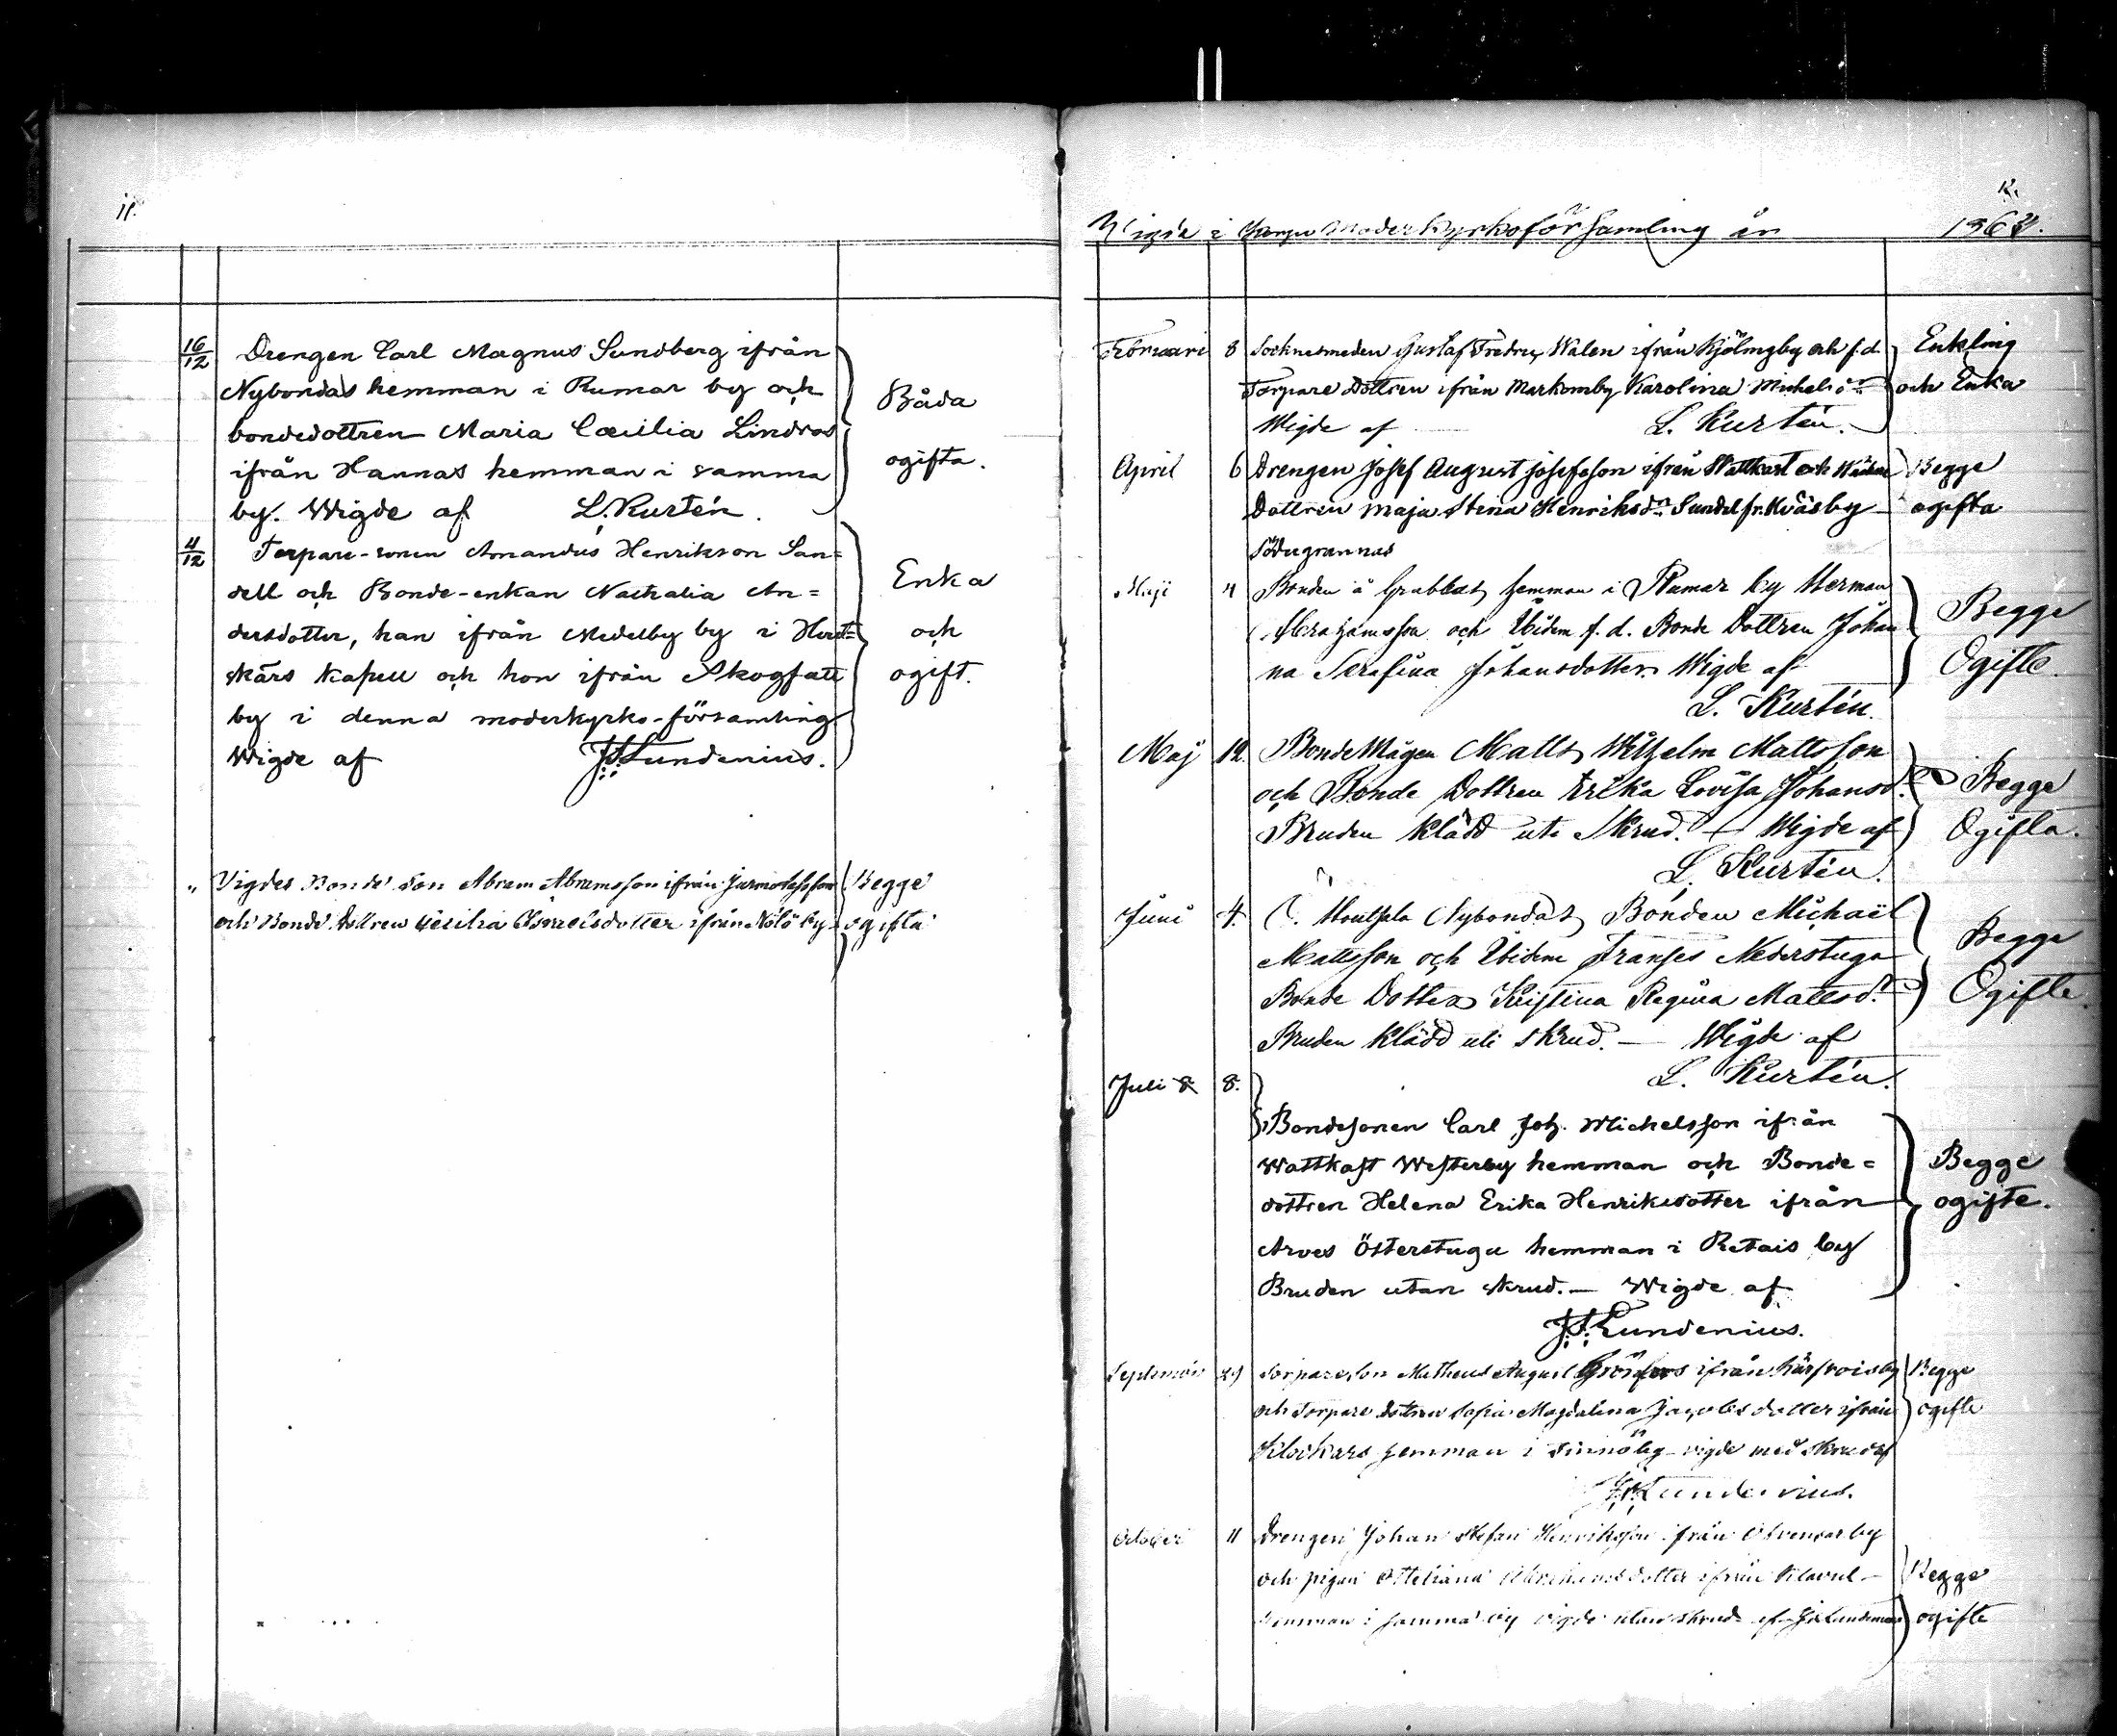 11.
16/12 Drengen Carl Magnus Sundberg ifrån
Nybondas hemman i Rumar by och Båda
bondedottren Maria Cæcilia Lindroos
ifrån Hannas hemman i samma ogifta.
by. Wigde af L. Kurtén.
4/12 Torpare-sonen Amandus Henrikson San=
dell och Bonde-enkan Nathalia An= Enka
dersdotter, han ifrån Medelby by i Hout= och
skärs Kapell och hon ifrån Skogfall ogift.
by i denna moderkyrko-församling
Wigde af Lundenius.
" Vigdes Bonde son Abram Abramsson ifrån Begge
och Bonde Dottren Cecilia Israelsdotter ifrån Nölö by ogifta
12.
Wigde i Korpo Moderkyrkoförsamling år 1862.
Februari 8 Socknesmeden Gustaf Fredrix Walen ifrån Kjölmgby och f.d. Enkling
Torpare Dottren ifrån Markomby Karolina Michelsdr och Enka
Wigde af L. Kurtén.
April 6 Drengen Josef August Josefsson ifrån Wattkast och Begge
Dottren Maja Stina Henriksdr Sundel fr. by ogifta
Södergrannas
Maji 4 Bonden å Grabbas hemman i Rumar by Herman
Abrahamsson och Ibidem f.d. Bonde Dottren Johan Begge
na Serafina Johansdotter. Wigde af Ogifte.
L. Kurtén.
Maj 12. BondeMågen Matts Wilhelm Mattsson
och Bonde Dottren Erika Lovisa Johansdr Begge
Bruden klädd uti Skrud. — Wigde af Ogifta.
L. Kurtén.
Juni 4. Nybondas Bonden Michaël
Mattsson och Ibidem Franses Nederstuga Begge
Bonde Dotter Kristina Regina Mattsdr Ogifte.
Bruden klädd uti skrud. — Wigde af
L. Kurtén.
Juli 8 8.
Bondesonen Carl Joh. Michelsson ifrån
Wattkast Westerby hemman och Bonde= Begge
dottren Helena Erika Henriksdotter ifrån ogifte.
Arves Österstugu hemman i Retais by
Bruden utan skrud. — Wigde af
Lundenius.
September 29 Torpare son Matheus August Grönroos ifrån Begge
och Torpare Dottren Sofia Magdalena Jacobsdotter ifrån ogifte
Klockars hemman i by vigde med skrud af
Lundenius.
October 11 Drengen Johan Stefan Henriksson ifrån by
och pigan ifrån Begge
hemman i samma by vigde utan skrud af Lundenius ogifte